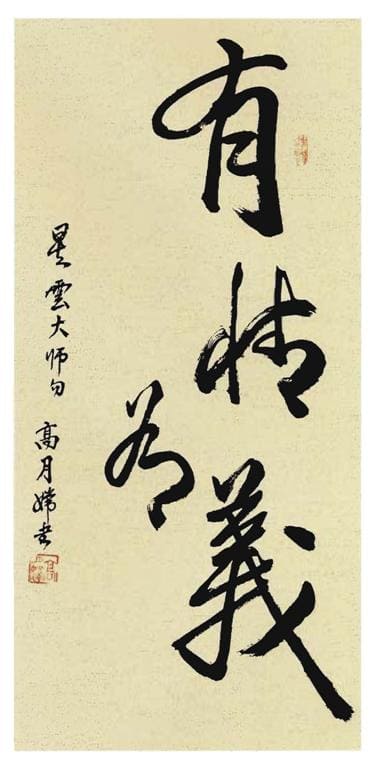 有情有義
星雲大师句
高月嫦书